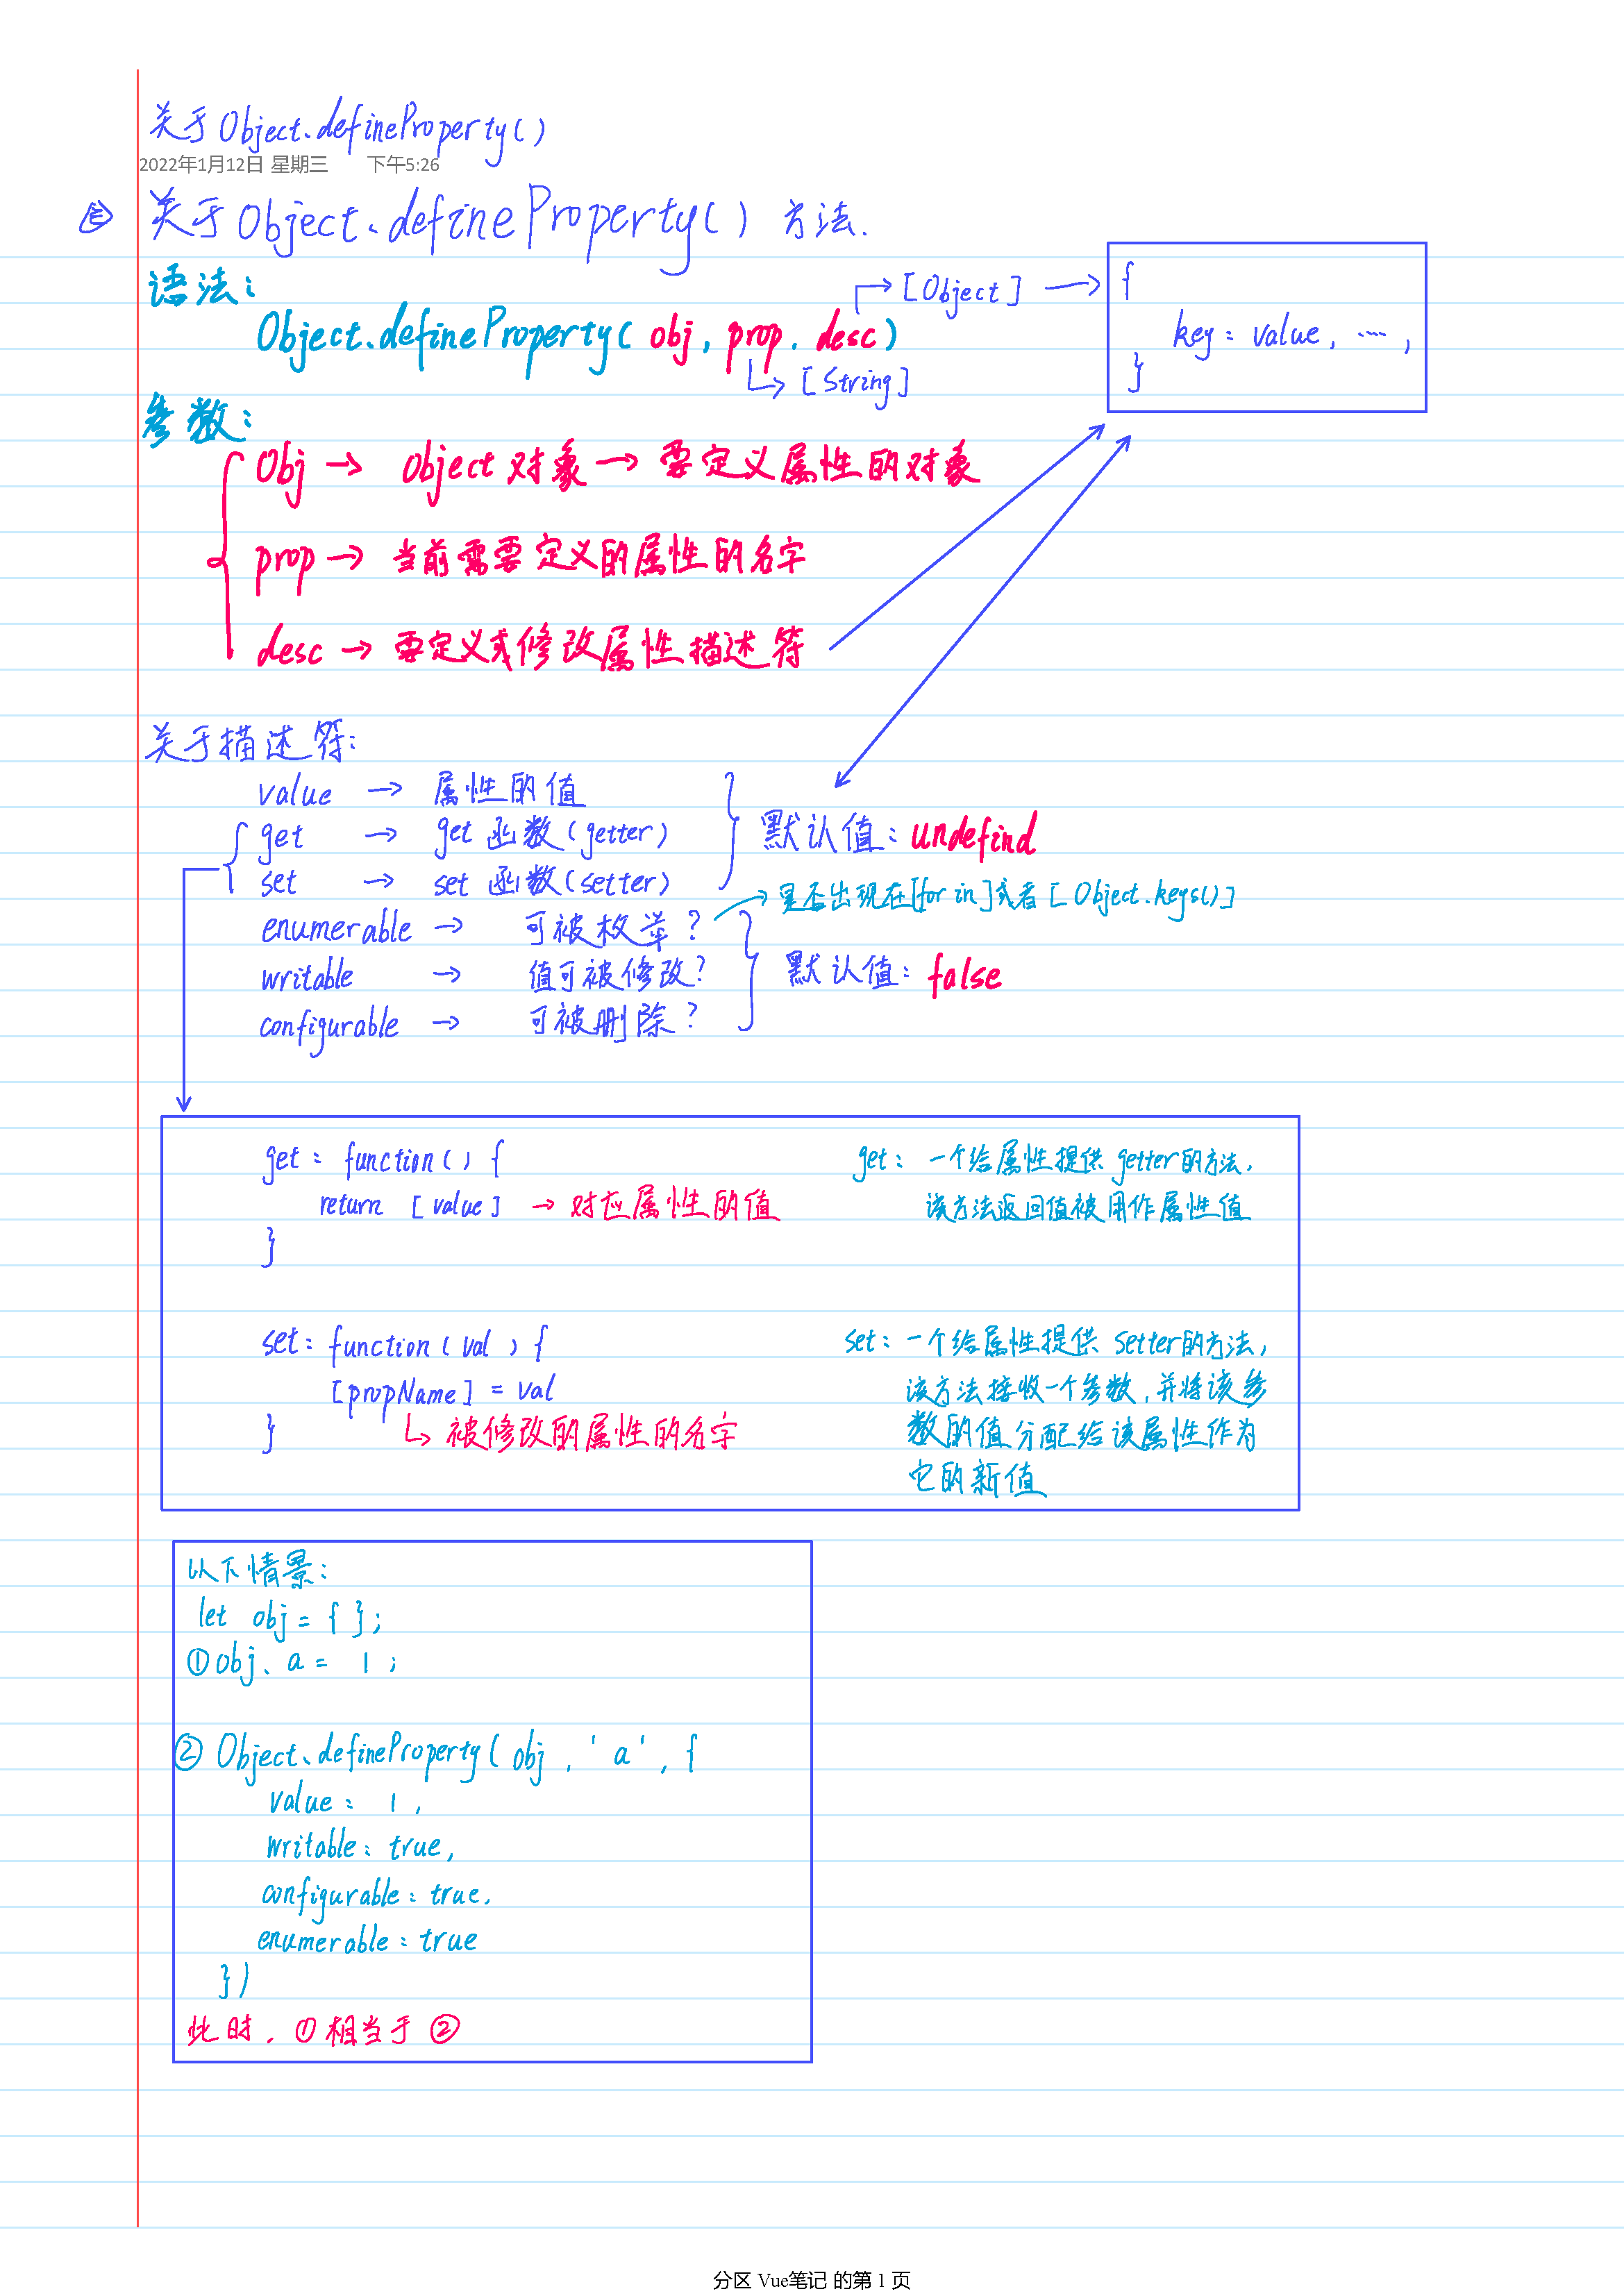 关于Object.defineProperty()
2022年1月12日 星期三 下午5:26
关于Object.defineProperty() 方法.
语法:
→ [Object] → {
key: value, ...,
}
Object.defineProperty( obj, prop, desc)
↳ [String]
参数:
Obj → Object 对象 → 要定义属性的对象
prop → 当前需要定义的属性的名字
desc → 要定义或修改属性描述符
关于描述符:
value → 属性的值
get → get 函数(getter)
set → set 函数(setter)
默认值: undefind
enumerable → 可被枚举? → 是否出现在[for in]或者[Object.keys()]
writable → 值可被修改?
configurable → 可被删除?
默认值: false
get: function() {
return [value] → 对应属性的值
}
get: 一个给属性提供 getter的方法,
该方法返回值被用作属性值
set: function(val) {
[propName] = val
↳ 被修改的属性的名字
}
set: 一个给属性提供 setter的方法,
该方法接收一个参数,并将该参
数的值分配给该属性作为
它的新值
以下情景:
let obj = { };
①obj.a = 1;
② Object.defineProperty( obj, 'a', {
value: 1,
writable: true,
configurable: true,
enumerable: true
})
此时, ①相当于②
分区 Vue笔记 的第 1 页